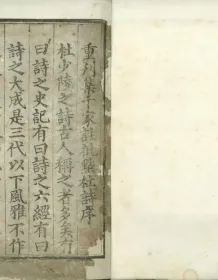 重刊集千家註批點杜詩序
杜少陵之詩古人稱之者多矣有
曰詩之史記有曰詩之六經有曰
詩之大成是三代以下風雅不作